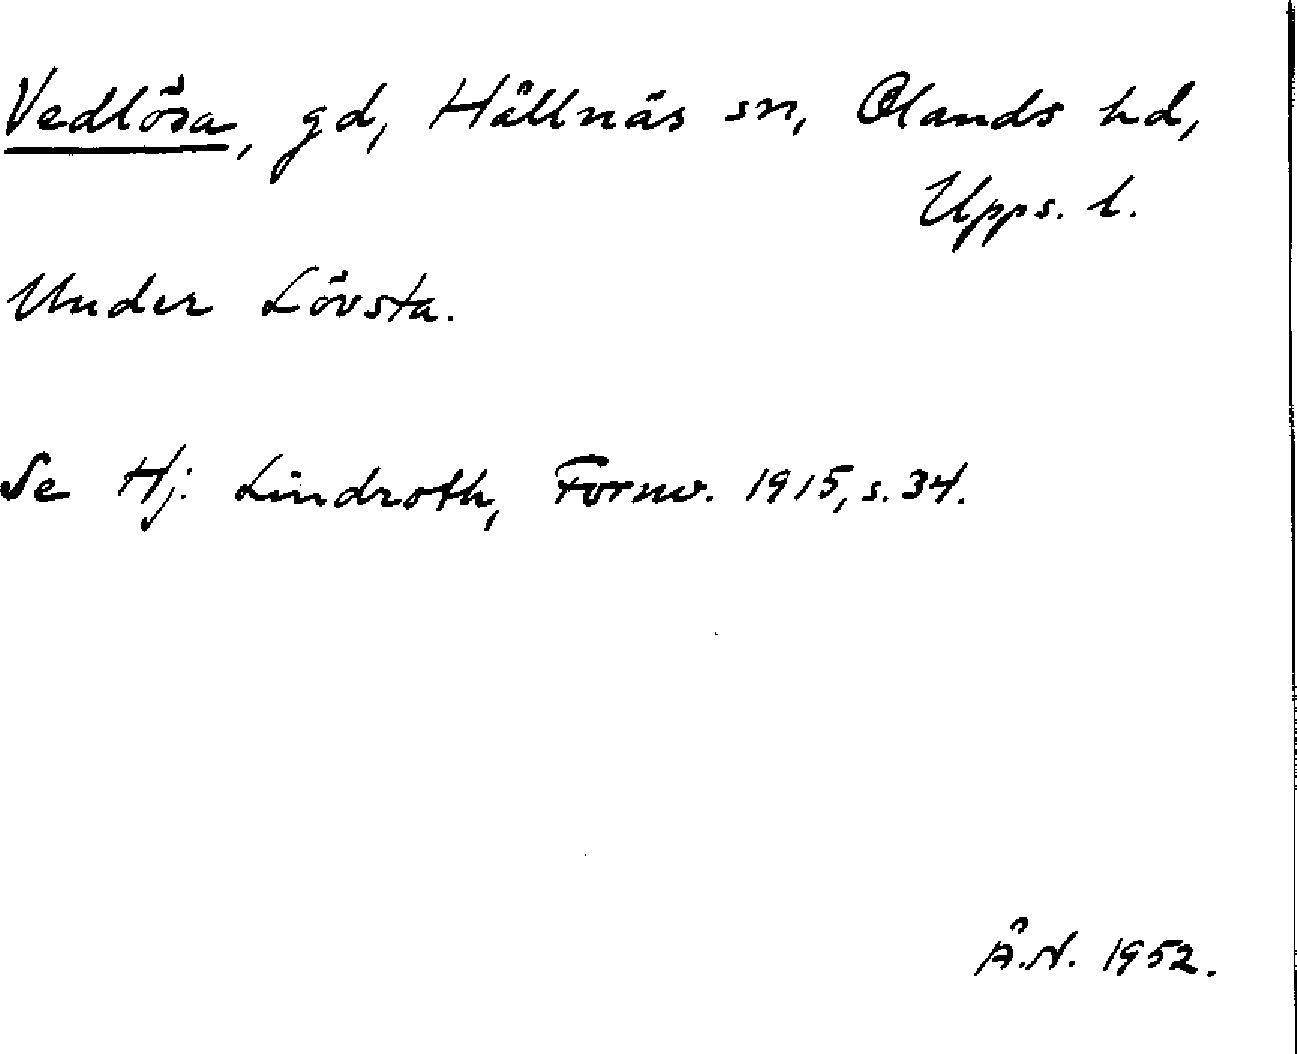 Vedlösa, gd, Hållnäs sn, Olands hd,
Upps. l.
Under Lövsta.
Se Hj. Lindroth, Fornv. 1915, s. 34.
Å.N. 1952.